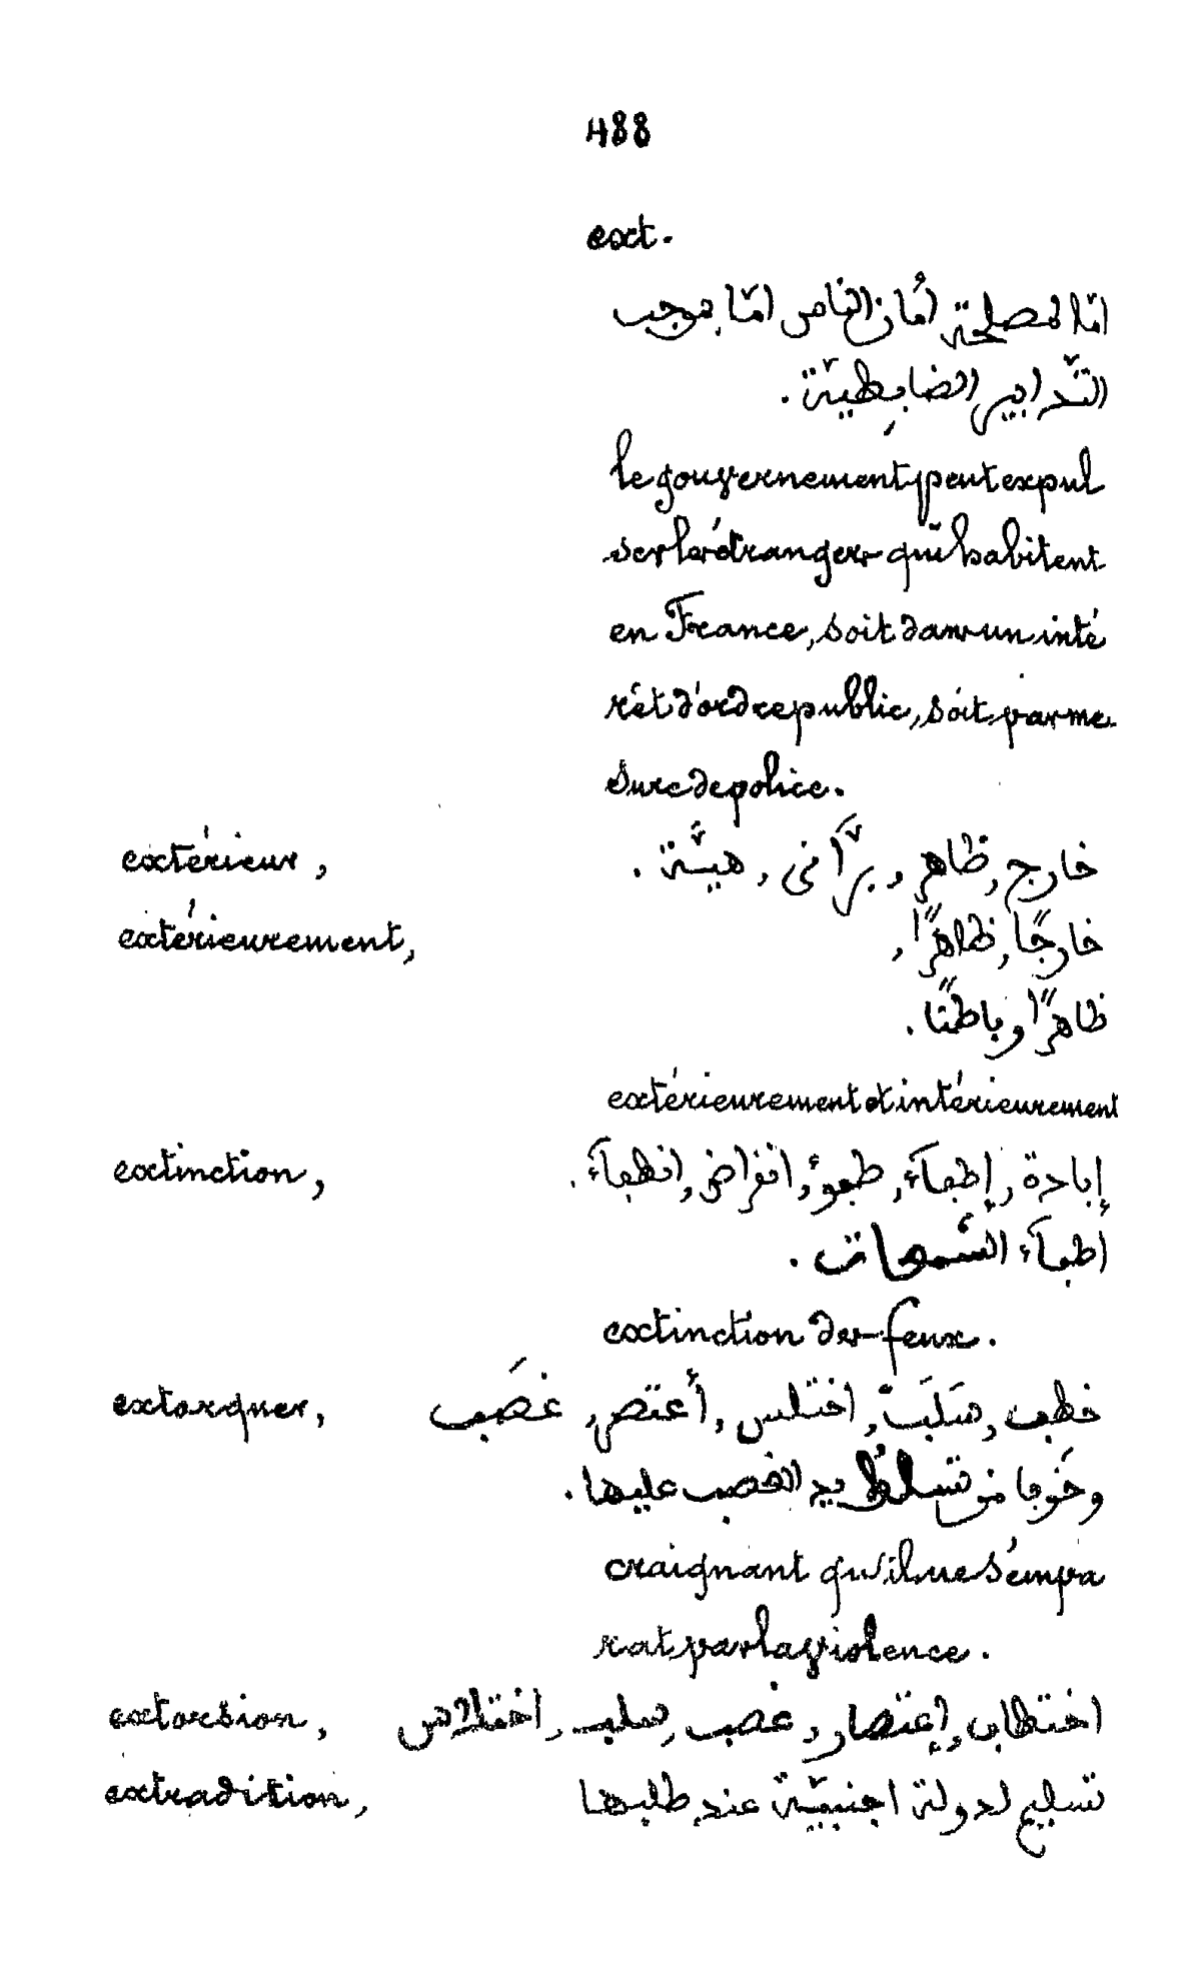 488
ext.
امّا لمصلحة أمان الناس امّا بموجب
التّدابير الضابِطيّة .
le gouvernement peut expul
ser les étrangers qui habitent
en France, soit dans un inté
rêt d'ordre public, soit par me
sure de police.
extérieur, خارج, ظاهر, برَّانى, هيئَّة .
extérieurement, خارجًا, ظاهرًا,
ظاهرًا وباطنًا .
extérieurement et intérieurement
extinction, إبادة, إطفآء, طفوءُ, انقراض, انطفآء .
اطفآء الشّمعات .
extinction des feux.
extorquer, خطف, سَلَبَ, اختلس, أعتصر, غصَب
وخَوفا من تسلّط يد الغصب عليها .
craignant qu'il ne s'empa
rat par la violence.
extorsion, اختطاف, إعتصار, غصب, سلب, اختلاس
extradition, تسليم لدولة اجنبيّة عند طلبها